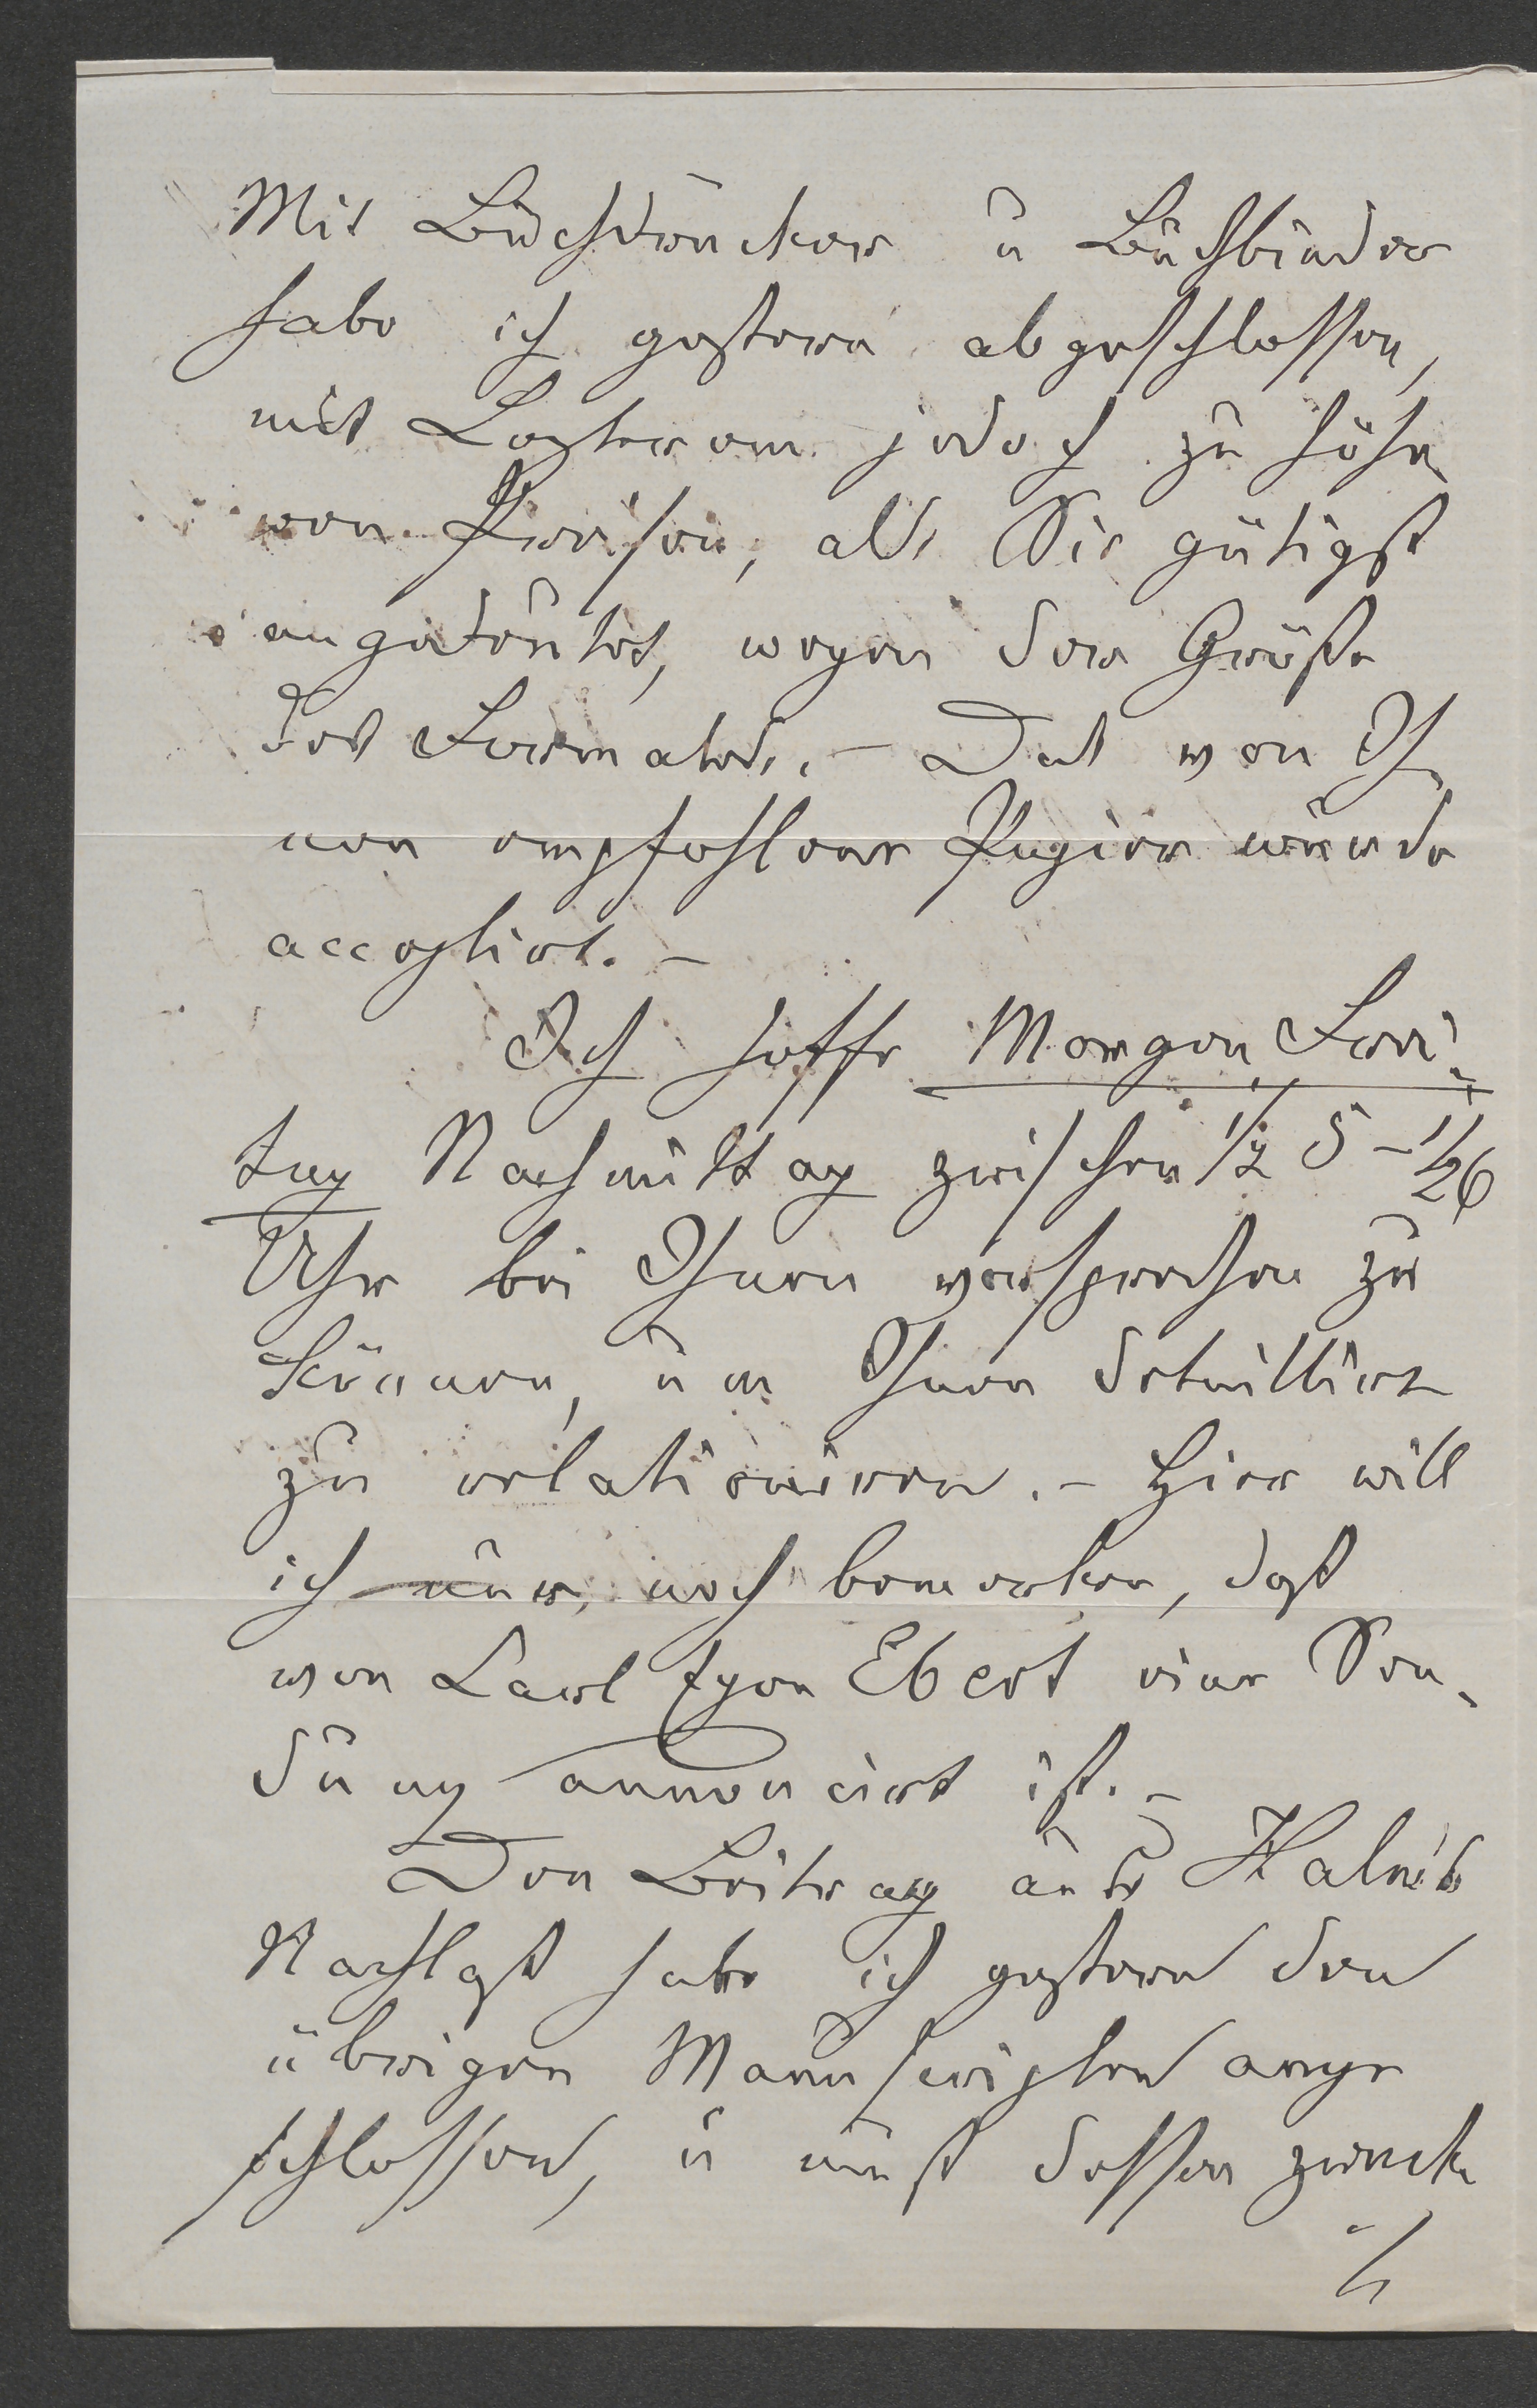 Mit Buchdrucker u Buchbinder
habe ich gestern abgeschlossen,
mit Letzterem jedoch zu höhe
ren Preisen, als Sie gütigst
angedeutet, wegen der Größe
des Formates. – Das von Ih¬
nen empfohlene Papier wurde
acceptirt. –
Ich hoffe Morgen, Frei¬
tag Nachmittag zwischen ½ 5 – ½6
Uhr bei Ihnen vorsprechen zu
können, um Ihnen Detaillirt
zu relationiren. – Hier will
ich nur noch bemerken, daß
von Carl Egon Ebert eine Sen¬
dung annoncirt ist. –
Den Beitrag aus Halm's
Nachlaß habe ich gestern den
übrigen Manuscripten ange
schlossen, u muß dessen zurück